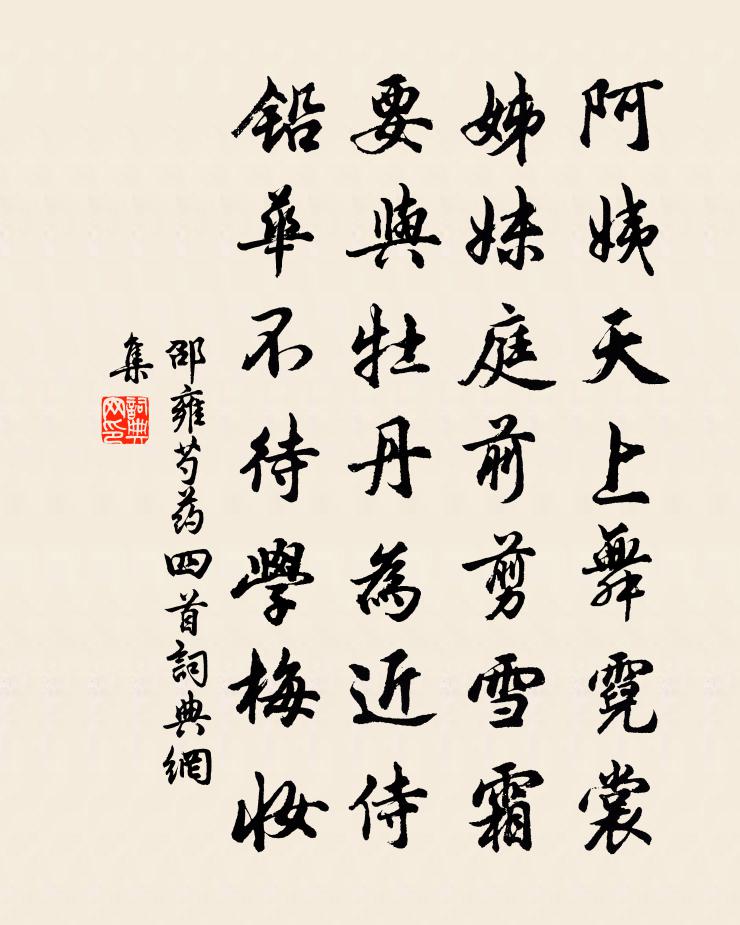 阿姨天上舞霓裳
姊妹庭前剪雪霜
要與牡丹為近侍
鉛華不待學梅妝
邵雍芍药四首詞典網
集
詞典
网印